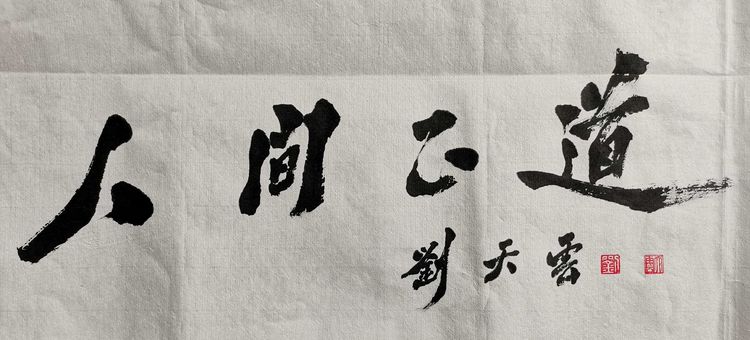 人间正道
劉天雲